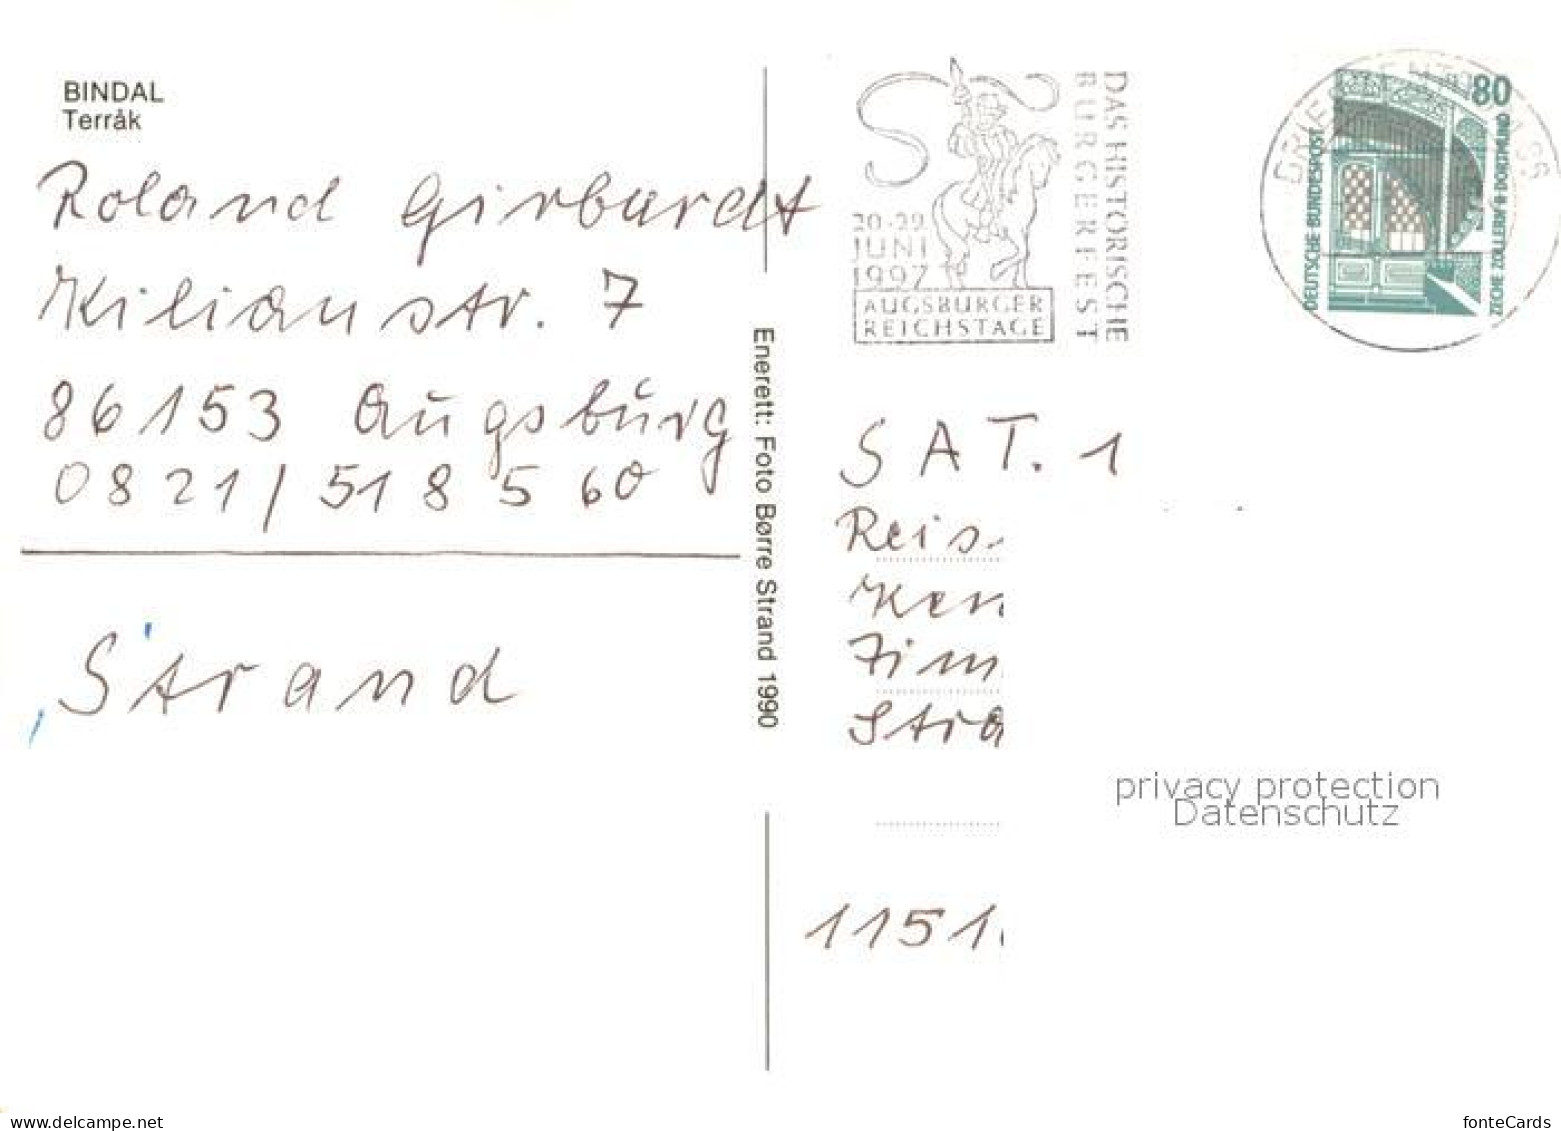 BINDAL
Terråk
Roland Girbardt
Kilianstr. 7
86153 Augsburg
0821/518560
Strand
Enerett: Foto Børre Strand 1990
20.-29.
JUNI
1997
AUGSBURGER
REICHSTAGE
DAS HISTORISCHE
BÜRGERFEST
80
DEUTSCHE BUNDESPOST
ZECHE ZOLLERN II · DORTMUND
BRIEFZENTRUM 86
SAT. 1
Reis
Ken
Zim
Stra
1151
privacy protection
Datenschutz
www.delcampe.net
fonteCards